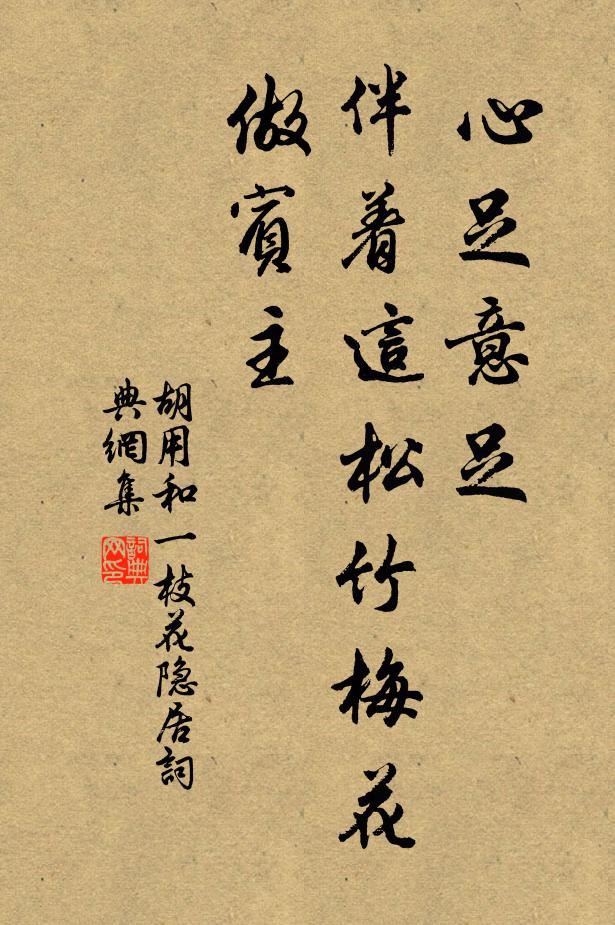 心足意足
伴着這松竹梅花
做賓主
胡用和一枝花隐居詞
典網集
詞典
网印